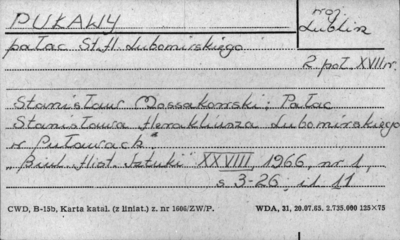 PUŁAWY
woj.
Lublin
pałac St. H. Lubomirskiego
2 poł. XVII w.
Stanisław Mossakowski: Pałac
Stanisława Herakliusza Lubomirskiego
w Puławach.
"Biul. Hist. Sztuki" XXVIII, 1966, nr 1,
s 3-26, il. 11
CWD, B-15b, Karta katal. (z liniat.) z. nr 1686/ZW/P. WDA, 31, 20.07.65. 2.735.000 125×75